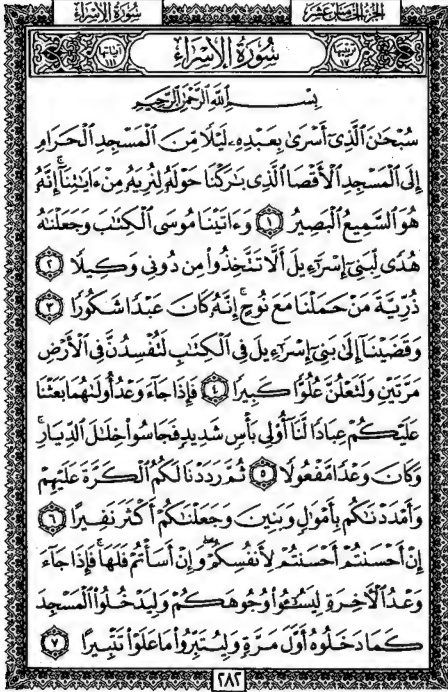 سُورَةُ الإِسْرَاءِ
الجُزْءُ الخَامِسَ عَشَرَ
سُورَةُ الإِسْرَاءِ
ترتيبها ١٧
آياتها ١١١
بِسْمِ ٱللَّهِ ٱلرَّحْمَٰنِ ٱلرَّحِيمِ
سُبْحَٰنَ ٱلَّذِىٓ أَسْرَىٰ بِعَبْدِهِۦ لَيْلًا مِّنَ ٱلْمَسْجِدِ ٱلْحَرَامِ
إِلَى ٱلْمَسْجِدِ ٱلْأَقْصَا ٱلَّذِى بَٰرَكْنَا حَوْلَهُۥ لِنُرِيَهُۥ مِنْ ءَايَٰتِنَآ ۚ إِنَّهُۥ
هُوَ ٱلسَّمِيعُ ٱلْبَصِيرُ ١ وَءَاتَيْنَا مُوسَى ٱلْكِتَٰبَ وَجَعَلْنَٰهُ
هُدًى لِّبَنِىٓ إِسْرَٰٓءِيلَ أَلَّا تَتَّخِذُوا۟ مِن دُونِى وَكِيلًا ٢
ذُرِّيَّةَ مَنْ حَمَلْنَا مَعَ نُوحٍ ۚ إِنَّهُۥ كَانَ عَبْدًا شَكُورًا ٣
وَقَضَيْنَآ إِلَىٰ بَنِىٓ إِسْرَٰٓءِيلَ فِى ٱلْكِتَٰبِ لَتُفْسِدُنَّ فِى ٱلْأَرْضِ
مَرَّتَيْنِ وَلَتَعْلُنَّ عُلُوًّا كَبِيرًا ٤ فَإِذَا جَآءَ وَعْدُ أُولَىٰهُمَا بَعَثْنَا
عَلَيْكُمْ عِبَادًا لَّنَآ أُو۟لِى بَأْسٍ شَدِيدٍ فَجَاسُوا۟ خِلَٰلَ ٱلدِّيَارِ ۚ
وَكَانَ وَعْدًا مَّفْعُولًا ٥ ثُمَّ رَدَدْنَا لَكُمُ ٱلْكَرَّةَ عَلَيْهِمْ
وَأَمْدَدْنَٰكُم بِأَمْوَٰلٍ وَبَنِينَ وَجَعَلْنَٰكُمْ أَكْثَرَ نَفِيرًا ٦
إِنْ أَحْسَنتُمْ أَحْسَنتُمْ لِأَنفُسِكُمْ ۖ وَإِنْ أَسَأْتُمْ فَلَهَا ۚ فَإِذَا جَآءَ
وَعْدُ ٱلْءَاخِرَةِ لِيَسُۥٓـُٔوا۟ وُجُوهَكُمْ وَلِيَدْخُلُوا۟ ٱلْمَسْجِدَ
كَمَا دَخَلُوهُ أَوَّلَ مَرَّةٍ وَلِيُتَبِّرُوا۟ مَا عَلَوْا۟ تَتْبِيرًا ٧
٢٨٢